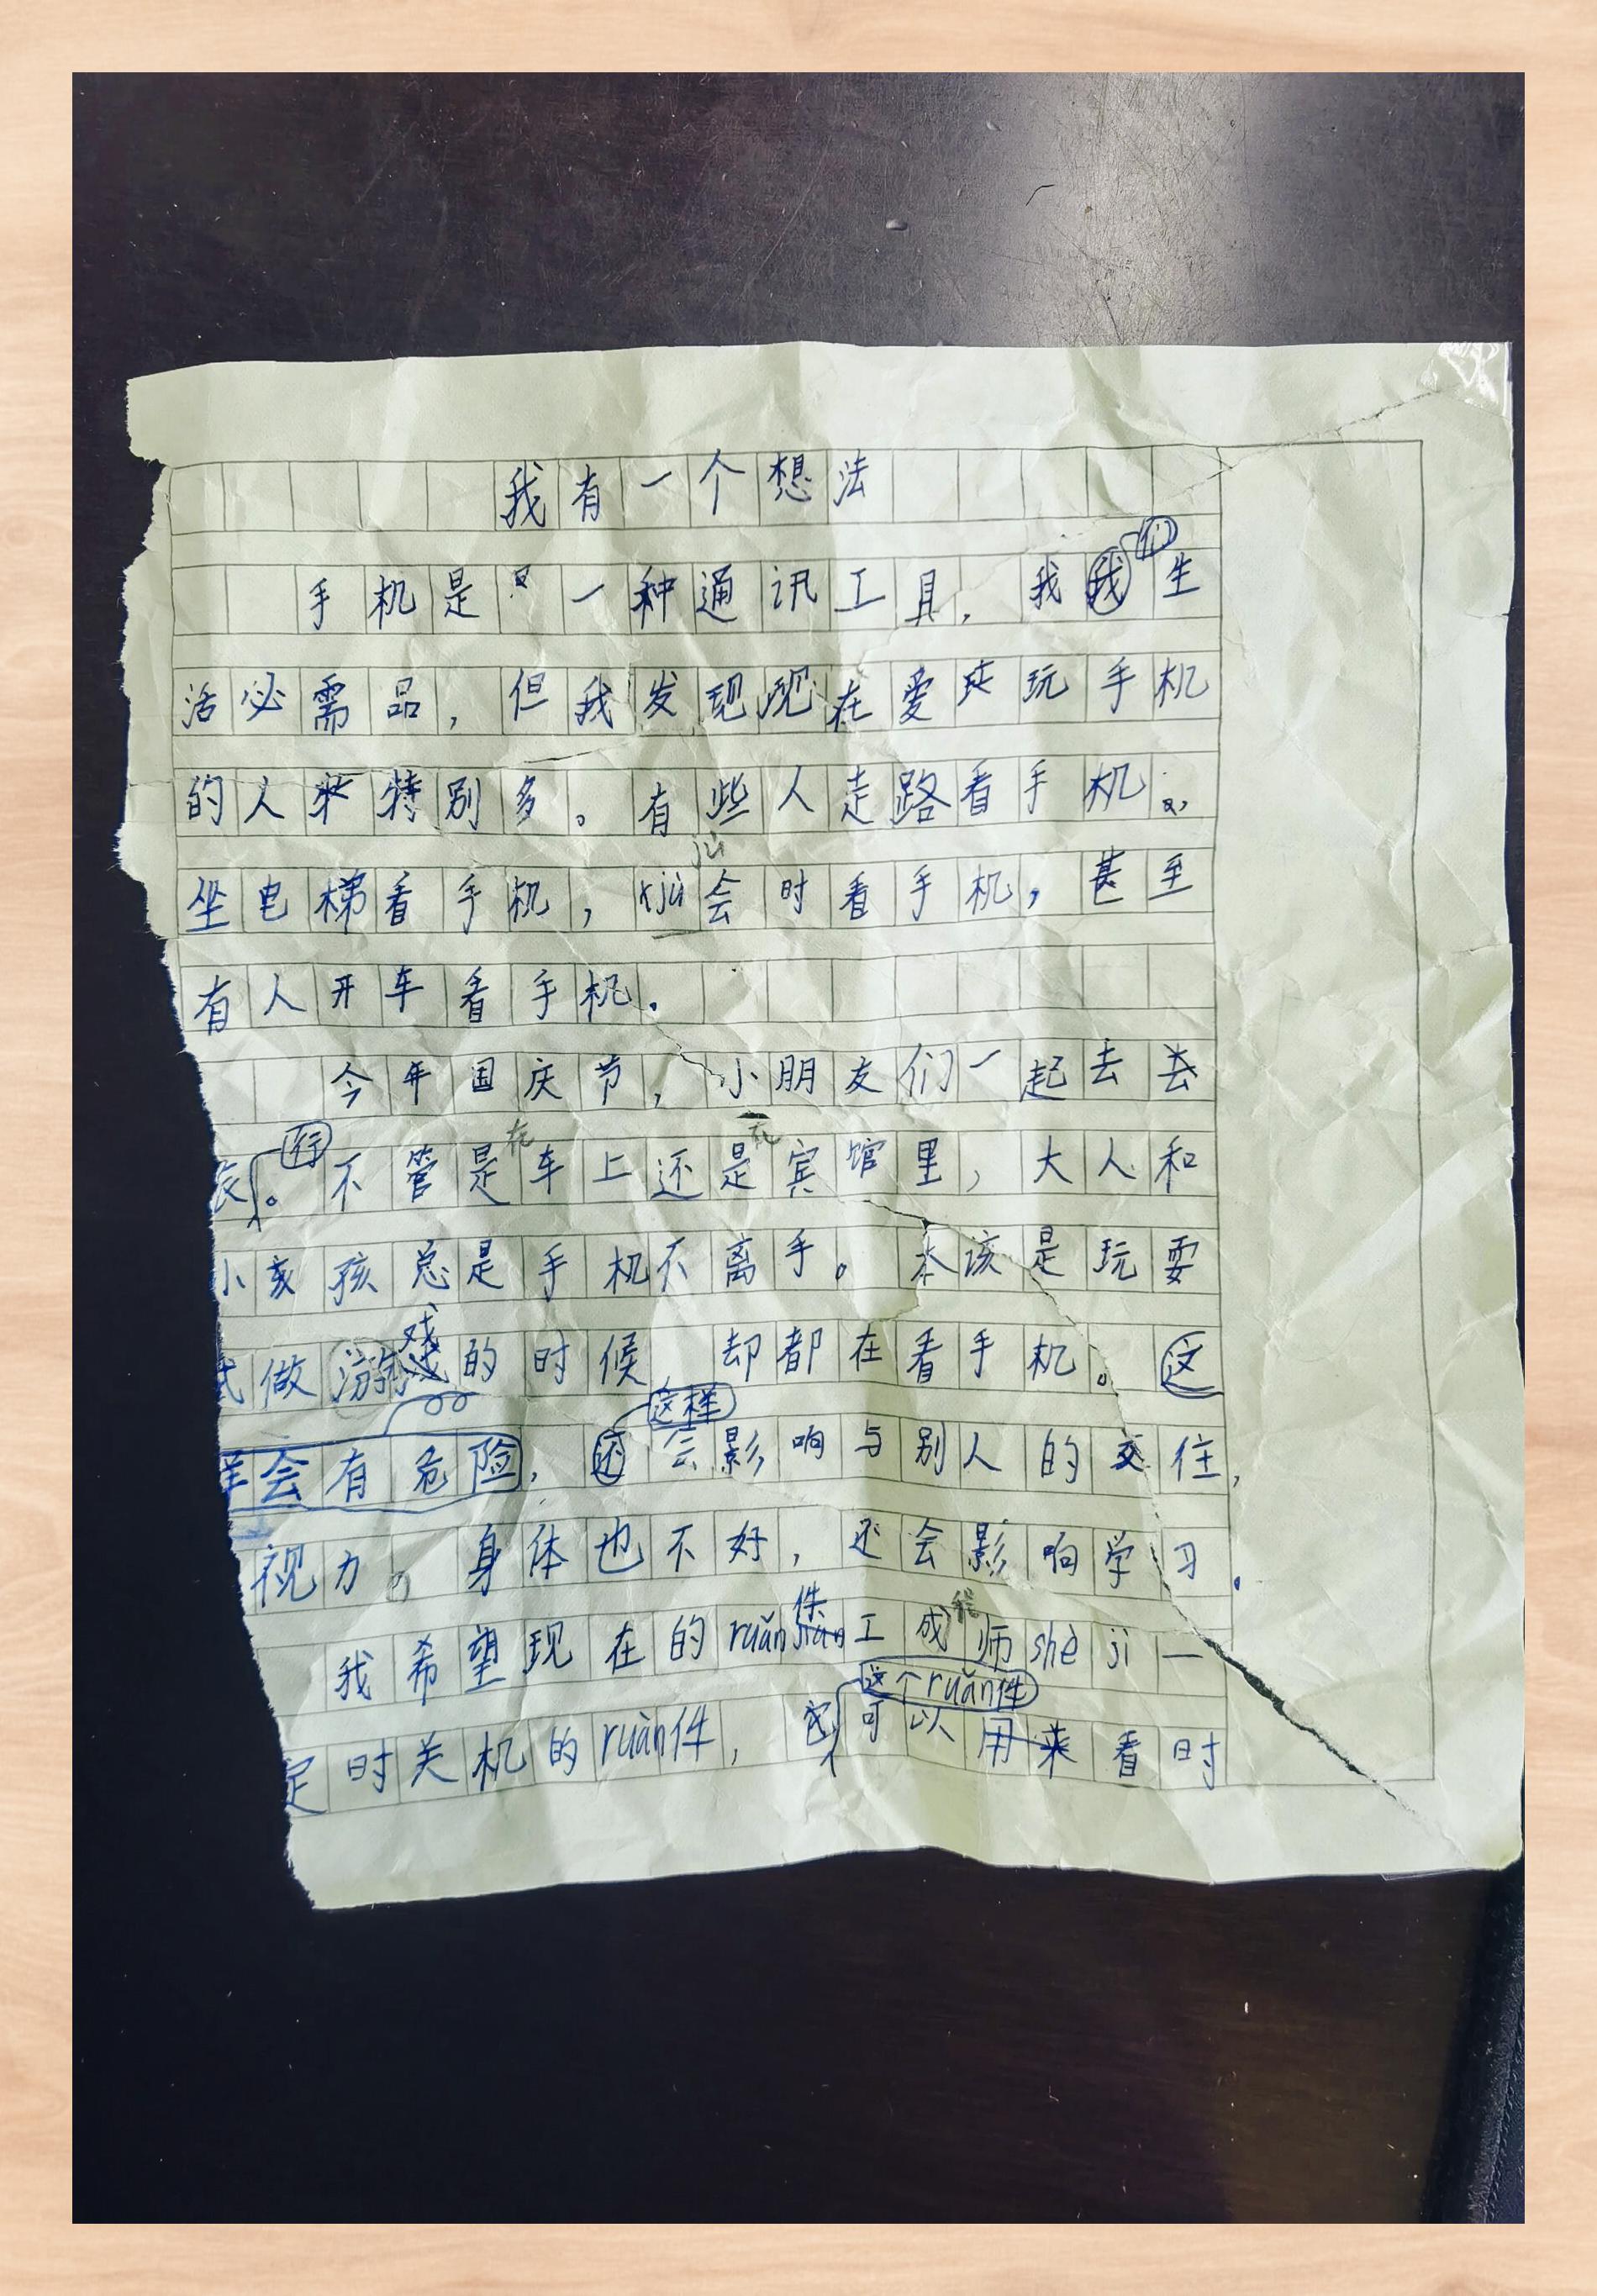 我有一个想法
手机是一种通讯工具，我们生
活必需品，但我发现现在爱玩手机
的人特别多。有些人走路看手机，
坐电梯看手机，jù会时看手机，甚至
有人开车看手机。
今年国庆节，小朋友们一起去
行。不管是在车上还是在宾馆里，大人和
小孩总是手机不离手。本该是玩耍
做游戏的时候 却都在看手机。这
样会有危险，还这样会影响与别人的交往，
视力。身体也不好，还会影响学习。
我希望现在的ruǎn件工程师shè jì一
定时关机的ruǎn件，这个ruǎn件可以用来看时